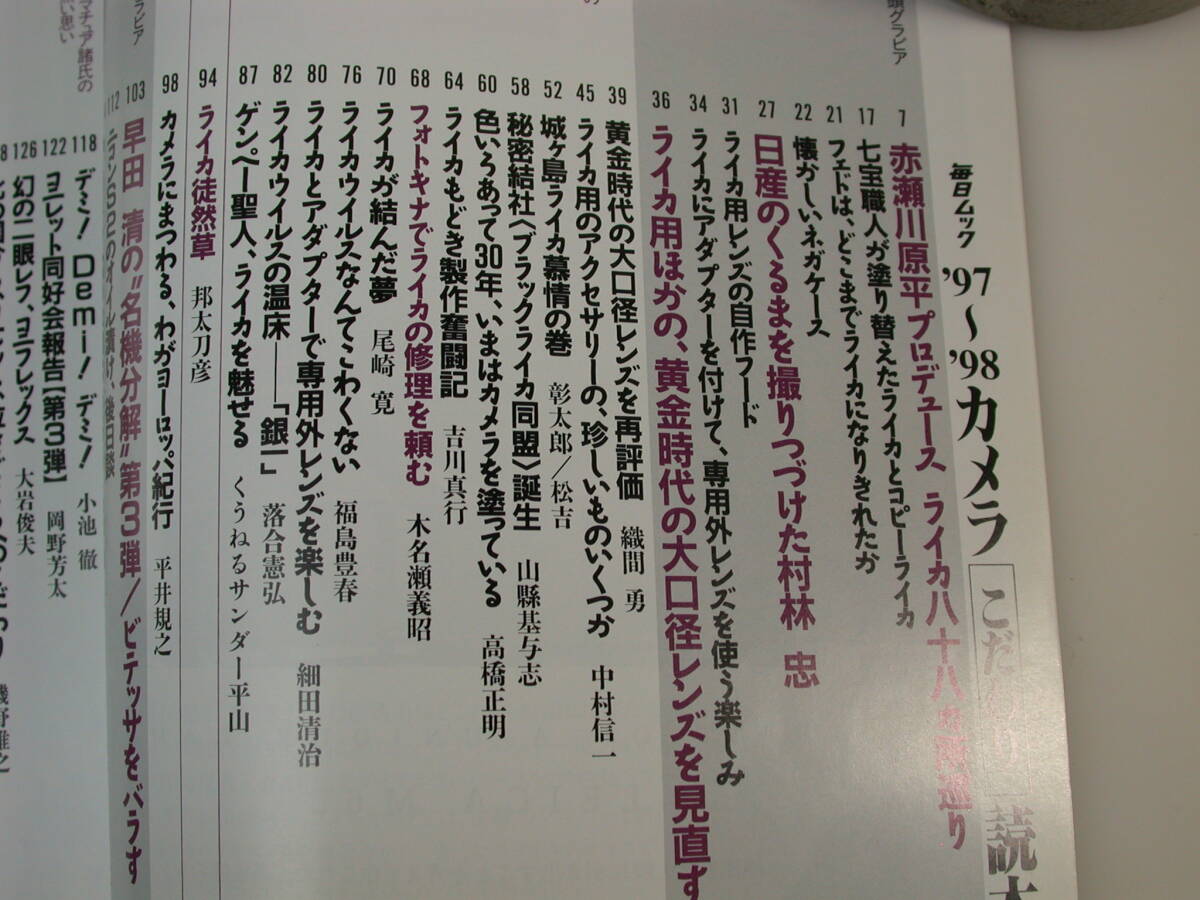 毎日ムック '97〜'98カメラ こだわり 読本
7 赤瀬川原平プロデュース ライカ八十八ヵ所巡り
17 七宝職人が塗り替えたライカとコピーライカ
21 フェドは、どこまでライカになりきれたか
22 懐かしいネガケース
27 日産のくるまを撮りつづけた村林 忠
31 ライカ用レンズの自作フード
34 ライカにアダプターを付けて、専用外レンズを使う楽しみ
36 ライカ用ほかの、黄金時代の大口径レンズを見直す
39 黄金時代の大口径レンズを再評価 織間 勇
45 ライカ用のアクセサリーの、珍しいものいくつか 中村信一
52 城ヶ島ライカ慕情の巻 彰太郎/松吉
58 秘密結社〈ブラックライカ同盟〉誕生 山縣基与志
60 色いろあって30年、いまはカメラを塗っている 高橋正明
64 ライカもどき製作奮闘記 吉川真行
68 フォトキナでライカの修理を頼む 木名瀬義昭
70 ライカが結んだ夢 尾崎 寛
76 ライカウイルスなんてこわくない 福島豊春
80 ライカとアダプターで専用外レンズを楽しむ 細田清治
82 ライカウイルスの温床――「銀一」 落合憲弘
87 ゲンペー聖人、ライカを魅せる くうねるサンダー平山
94 ライカ徒然草 邦太刀彦
98 カメラにまつわる、わがヨーロッパ紀行 平井規之
103 早田 清の"名機分解"第3弾/ビテッサをバラす
112 ニコンS2のオイル漬け、後日談
118 デミ! Demi! デミ! 小池 徹
122 ヨーレット同好会報告[第3弾] 岡野芳太
126 幻の二眼レフ、ヨーフレックス 大岩俊夫
グラビア
マチュア諸氏の
い思い
頭グラビア
の